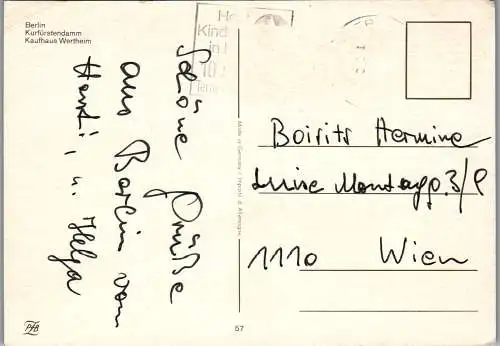 Berlin
Kurfürstendamm
Kaufhaus Wertheim
Schöne Grüße
aus Berlin von
Hansi, u. Helga
Made in Germany / Imprimé d'Allemagne
Boisits Hermine
Luise Montagg. 3/9
1110 Wien
PfB
57